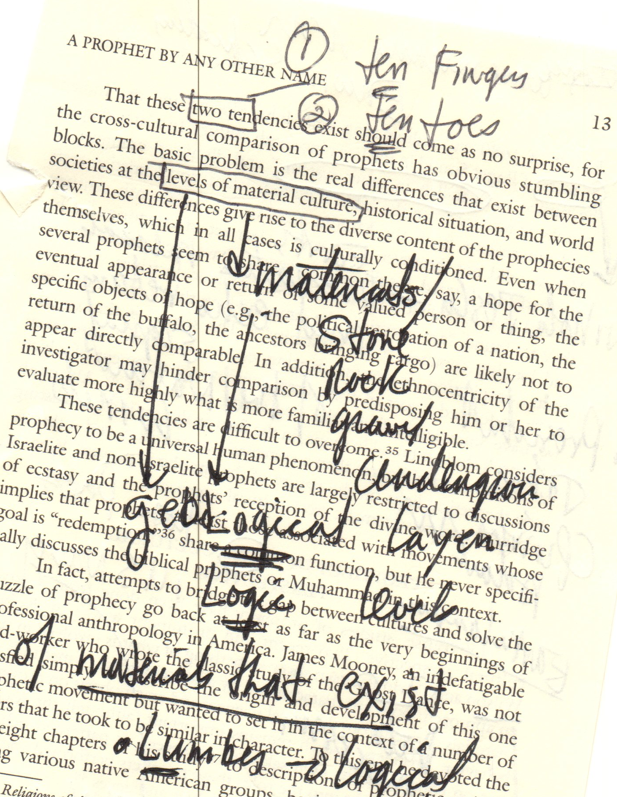 A PROPHET BY ANY OTHER NAME
① ten Fingers
② Ten toes
13
That these two tendencies exist should come as no surprise, for
the cross-cultural comparison of prophets has obvious stumbling
blocks. The basic problem is the real differences that exist between
societies at the levels of material culture, historical situation, and world
view. These differences give rise to the diverse content of the prophecies
themselves, which in all cases is culturally conditioned. Even when
several prophets seem to share a common theme, say, a hope for the
eventual appearance or return of some valued person or thing, the
specific objects of hope (e.g., the political restoration of a nation, the
return of the buffalo, the ancestors bringing cargo) are likely not to
appear directly comparable. In addition, ethnocentricity of the
investigator may hinder comparison by predisposing him or her to
evaluate more highly what is more familiar intelligible.
These tendencies are difficult to overcome.35 Lindblom considers
prophecy to be a universal human phenomenon, of
Israelite and non-Israelite prophets are largely restricted to discussions
of ecstasy and the prophets' reception of the divine word. Burridge
implies that prophets associated with movements whose
goal is "redemption"36 share a common function, but he never specifi-
ally discusses the biblical prophets or Muhammad in this context.
In fact, attempts to bridge the gap between cultures and solve the
uzzle of prophecy go back at least as far as the very beginnings of
ofessional anthropology in America. James Mooney, an indefatigable
d-worker who wrote the classic study of the Ghost Dance, was not
simply describe the origin and development of this one
phetic movement but wanted to set it in the context of a number of
ers that he took to be similar in character. To this devoted the
eight chapters of his to descriptions of
ng various native American groups,
Religions of
materials
Stone
Rock
geological Layer
Logic level
of materials that exist
Lumber → Logical